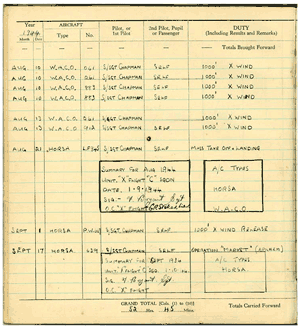 YEAR AIRCRAFT Pilot, or 2nd Pilot, Pupil DUTY
1944 Type No. 1st Pilot or Passenger (Including Results and Remarks)
Totals Brought Forward
AUG 10 W.A.C.O. 041 S/SGT CHAPMAN SELF 1000' X WIND
AUG 10 W.A.C.O. 041 S/SGT CHAPMAN SELF 1000' X WIND
AUG 10 W.A.C.O. S/SGT CHAPMAN SELF 1000' X WIND
AUG 10 W.A.C.O. S/SGT CHAPMAN SELF 1000' X WIND
AUG 13 W.A.C.O. 041 S/SGT CHAPMAN SELF 1000' X WIND
AUG 13 W.A.C.O. S/SGT CHAPMAN SELF 1000' X WIND
AUG 21 HORSA S/SGT CHAPMAN SELF MASS TAKE OFF & LANDING
SUMMARY FOR AUG 1944 A/C TYPES
UNIT "X" FLIGHT "C" SQDN
DATE 1-9-1944 HORSA
W.A.C.O
O.C "X" FLIGHT
SEPT 8 HORSA S/SGT CHAPMAN SELF 1000' X WIND RELEASE
SEPT 17 HORSA S/SGT CHAPMAN SELF OPERATION "MARKET"
SUMMARY FOR SEPT A/C TYPES
UNIT HORSA
O.C "X" FLIGHT
GRAND TOTAL [Cols. (1) to (10)]
52 Hrs. 45 Mins.